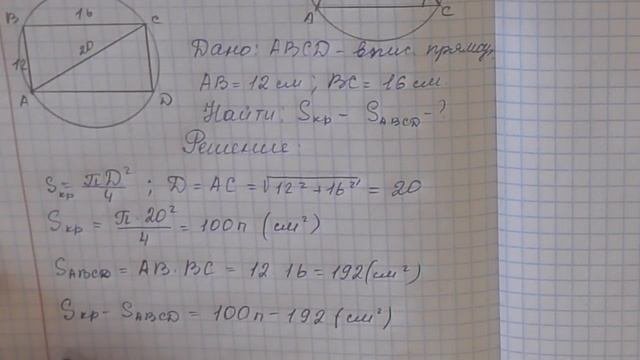 B 16 C
20
12
A D
A C
Дано: ABCD - впис. прямоу.
AB = 12 см ; BC = 16 см
Найти: Sкр - SABCD - ?
Решение:
Sкр = πD²/4 ; D = AC = √12² + 16² = 20
Sкр = π · 20²/4 = 100π (см²)
SABCD = AB · BC = 12 · 16 = 192 (см²)
Sкр - SABCD = 100π - 192 (см²)